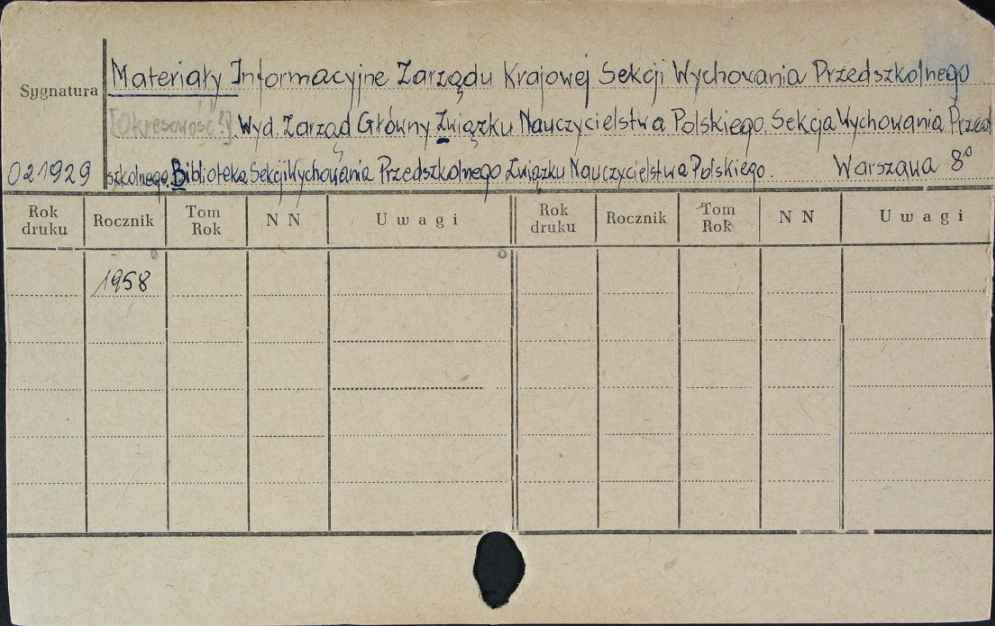 Materiały Informacyjne Zarządu Krajowej Sekcji Wychowania Przedszkolnego
Sygnatura
[Okresowość?] Wyd. Zarząd Główny Związku Nauczycielstwa Polskiego. Sekcja Wychowania Przed
021929 szkolnego. Biblioteka Sekcji Wychowania Przedszkolnego Związku Nauczycielstwa Polskiego. Warszawa 8°
Rok druku Rocznik Tom Rok NN Uwagi Rok druku Rocznik Tom Rok NN Uwagi
1958